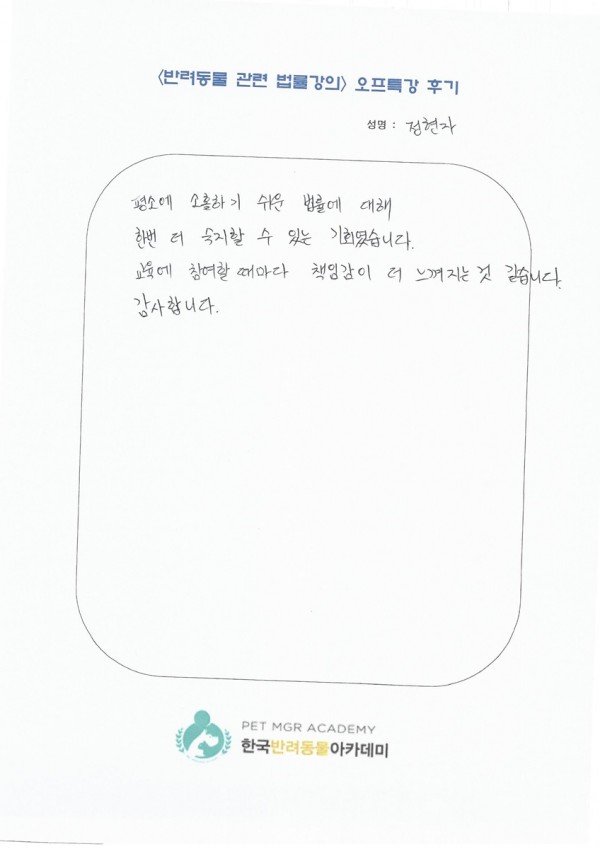 <반려동물 관련 법률강의> 오프특강 후기
성명 : 정현자
평소에 소홀하기 쉬운 법률에 대해
한번 더 숙지할 수 있는 기회였습니다.
교육에 참여할 때마다 책임감이 더 느껴지는것 같습니다.
감사합니다.
PET MGR ACADEMY
한국반려동물아카데미